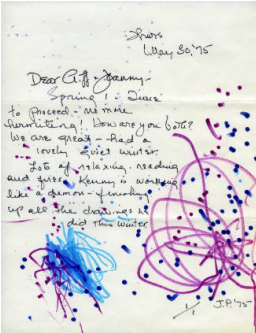 Thurs
May 30, '75
Dear Giff & Joanny-
Spring! Time
to proceed - no more
hermiting! How are you both?
We are great - had a
lovely quiet winter.
Lots of relaxing, reading
and fires. Kenny is working
like a demon - finishing
up all the drawings he
did this winter
1/1
J.P. '75